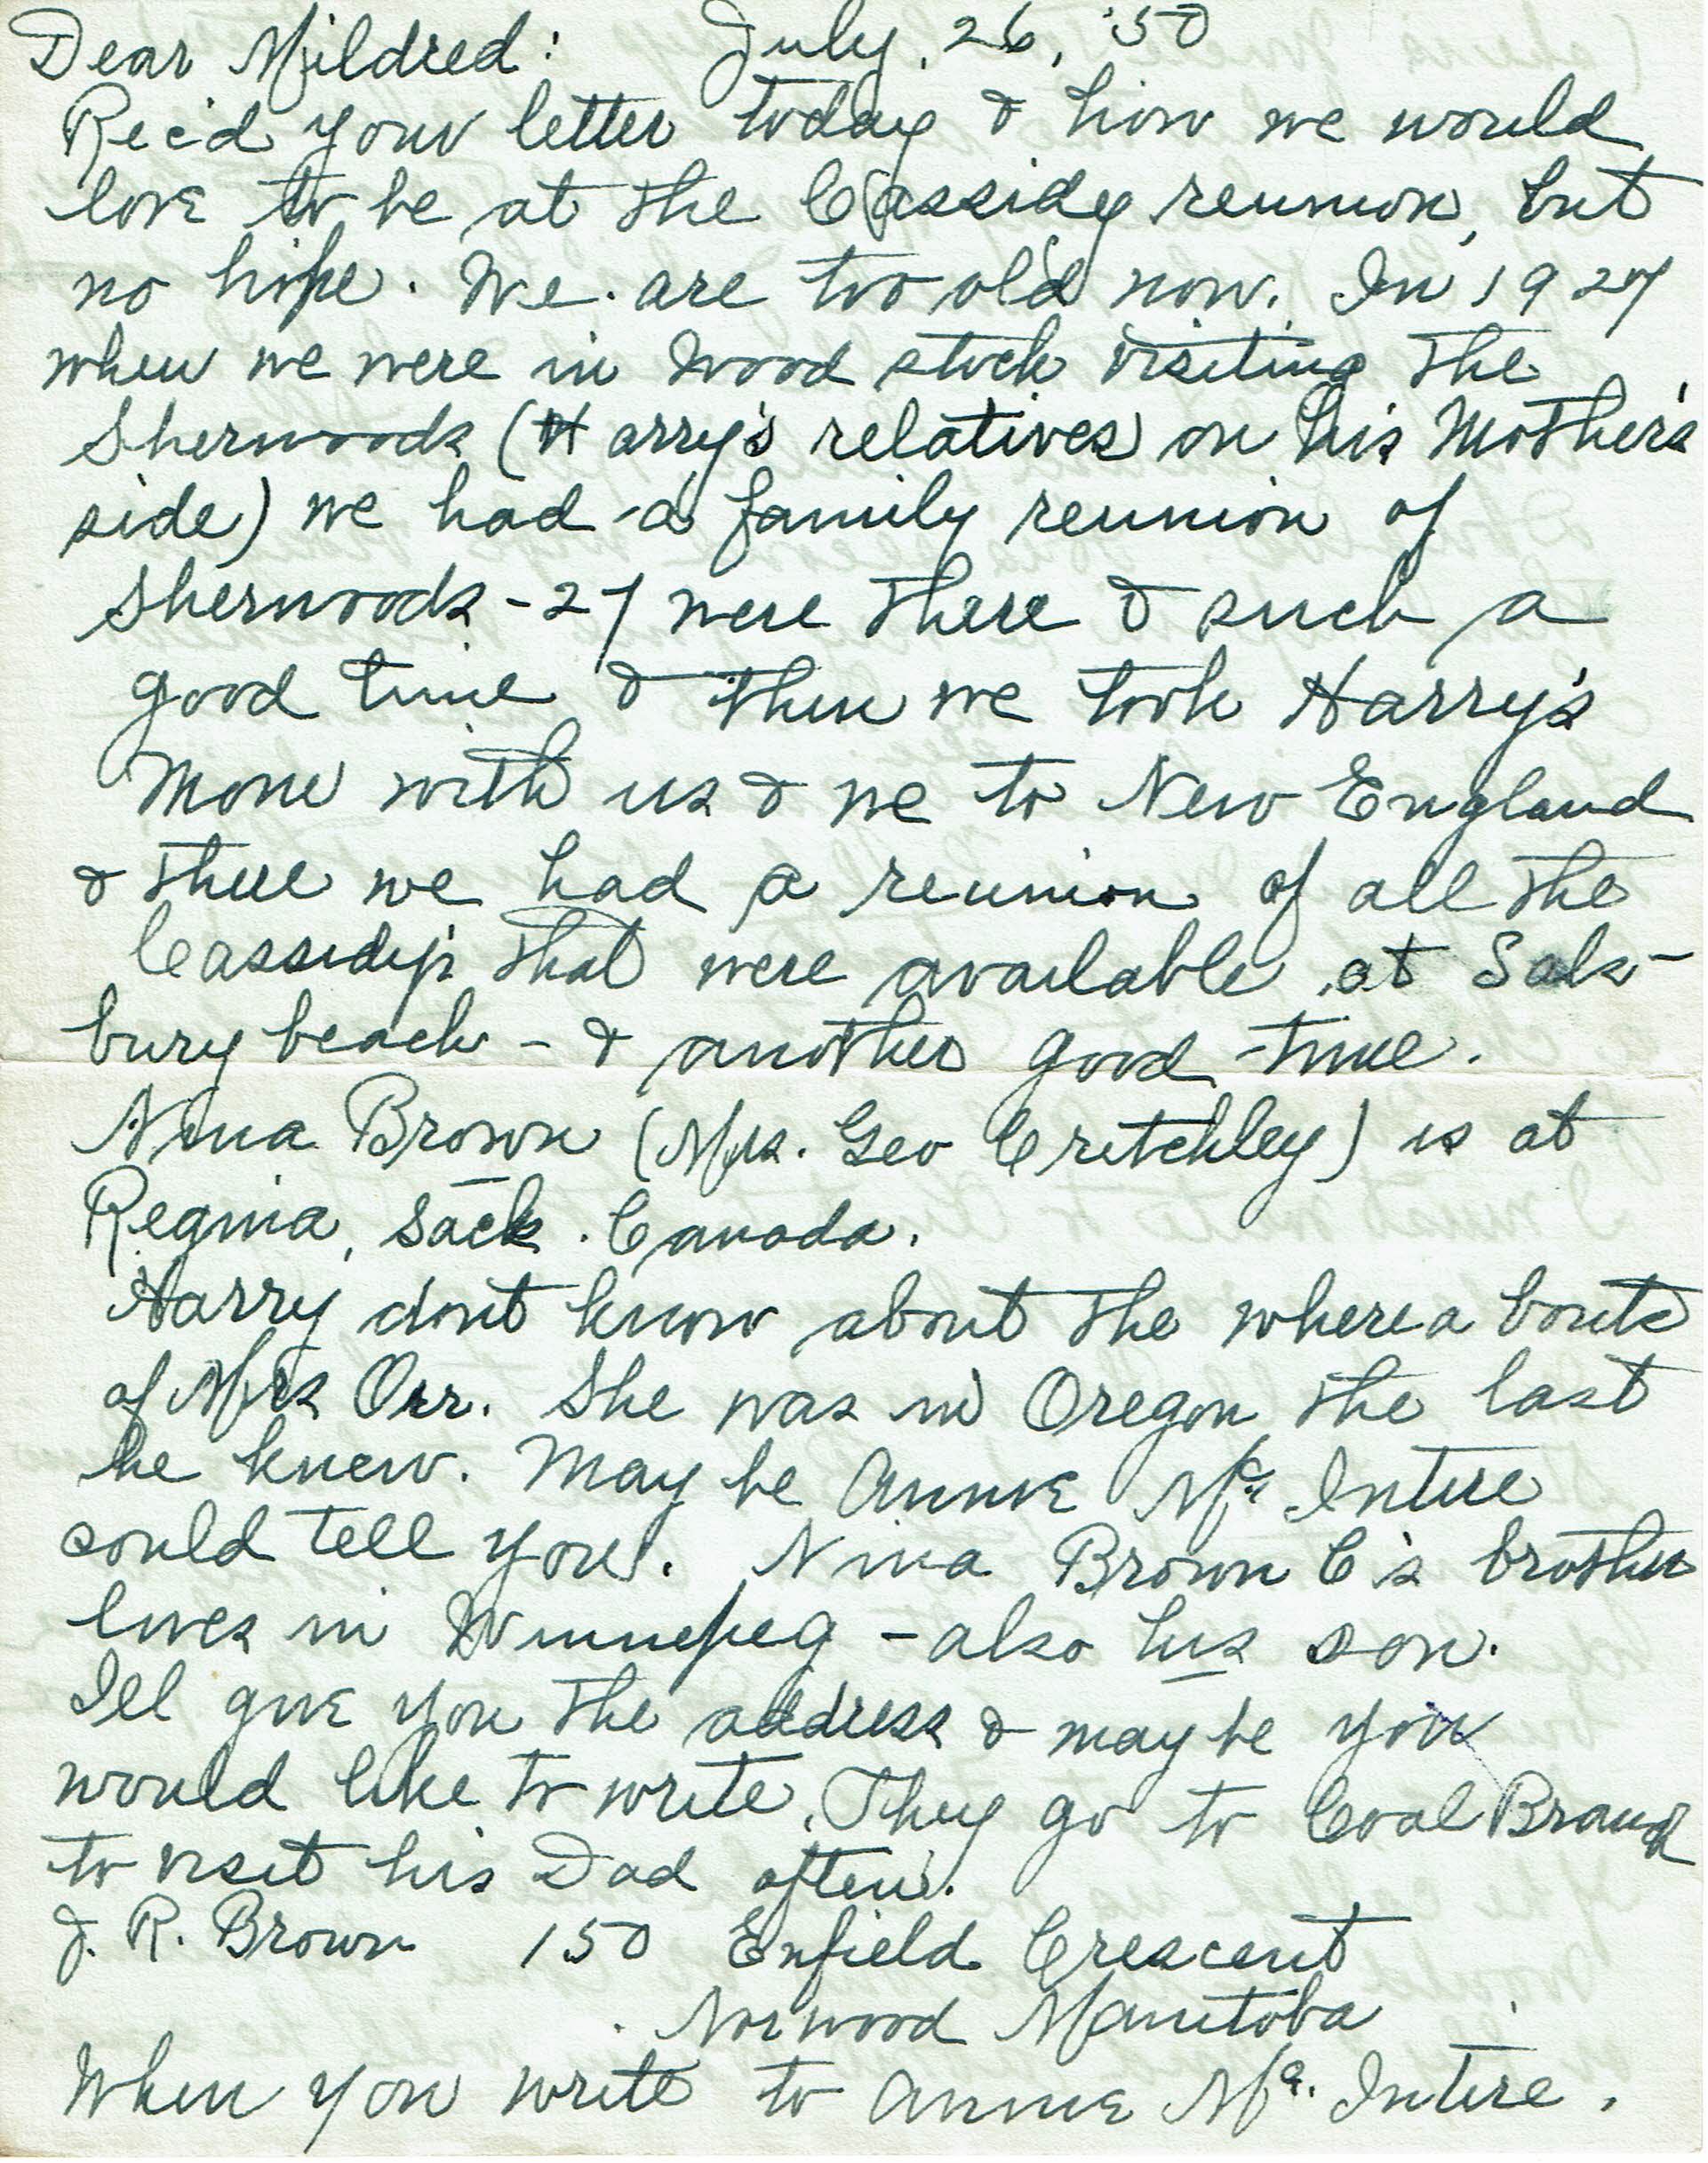 Dear Mildred: July, 26, '50
Rec'd your letter today & how we would
love to be at the Cassidy reunion, but
no hope. We are too old now. In 1927
when we were in Wood stock visiting the
Sherwoods (Harry's relatives on his Mother's
side) we had a family reunion of
Sherwoods - 27 were there & such a
good time & then we took Harry's
Mone with us & we to New England
& there we had a reunion of all the
Cassidy's that were available at Sals-
bury beach - & another good time.
Nina Brown (Mrs. Geo Critchley) is at
Regina, Sack. Canada.
Harry dont know about the where a bouts
of Mrs Orr. She was in Oregon the last
he knew. May be Annie Mc Intire
could tell you. Nina Brown C's brother
lives in Winnepeg - also his son.
Ill give you the address & may be you
would like to write. They go to Coal Branch
to visit his Dad often.
J. R. Brown 150 Enfield Crescent
Norwood Manitoba
When you write to Annie Mc. Intire.